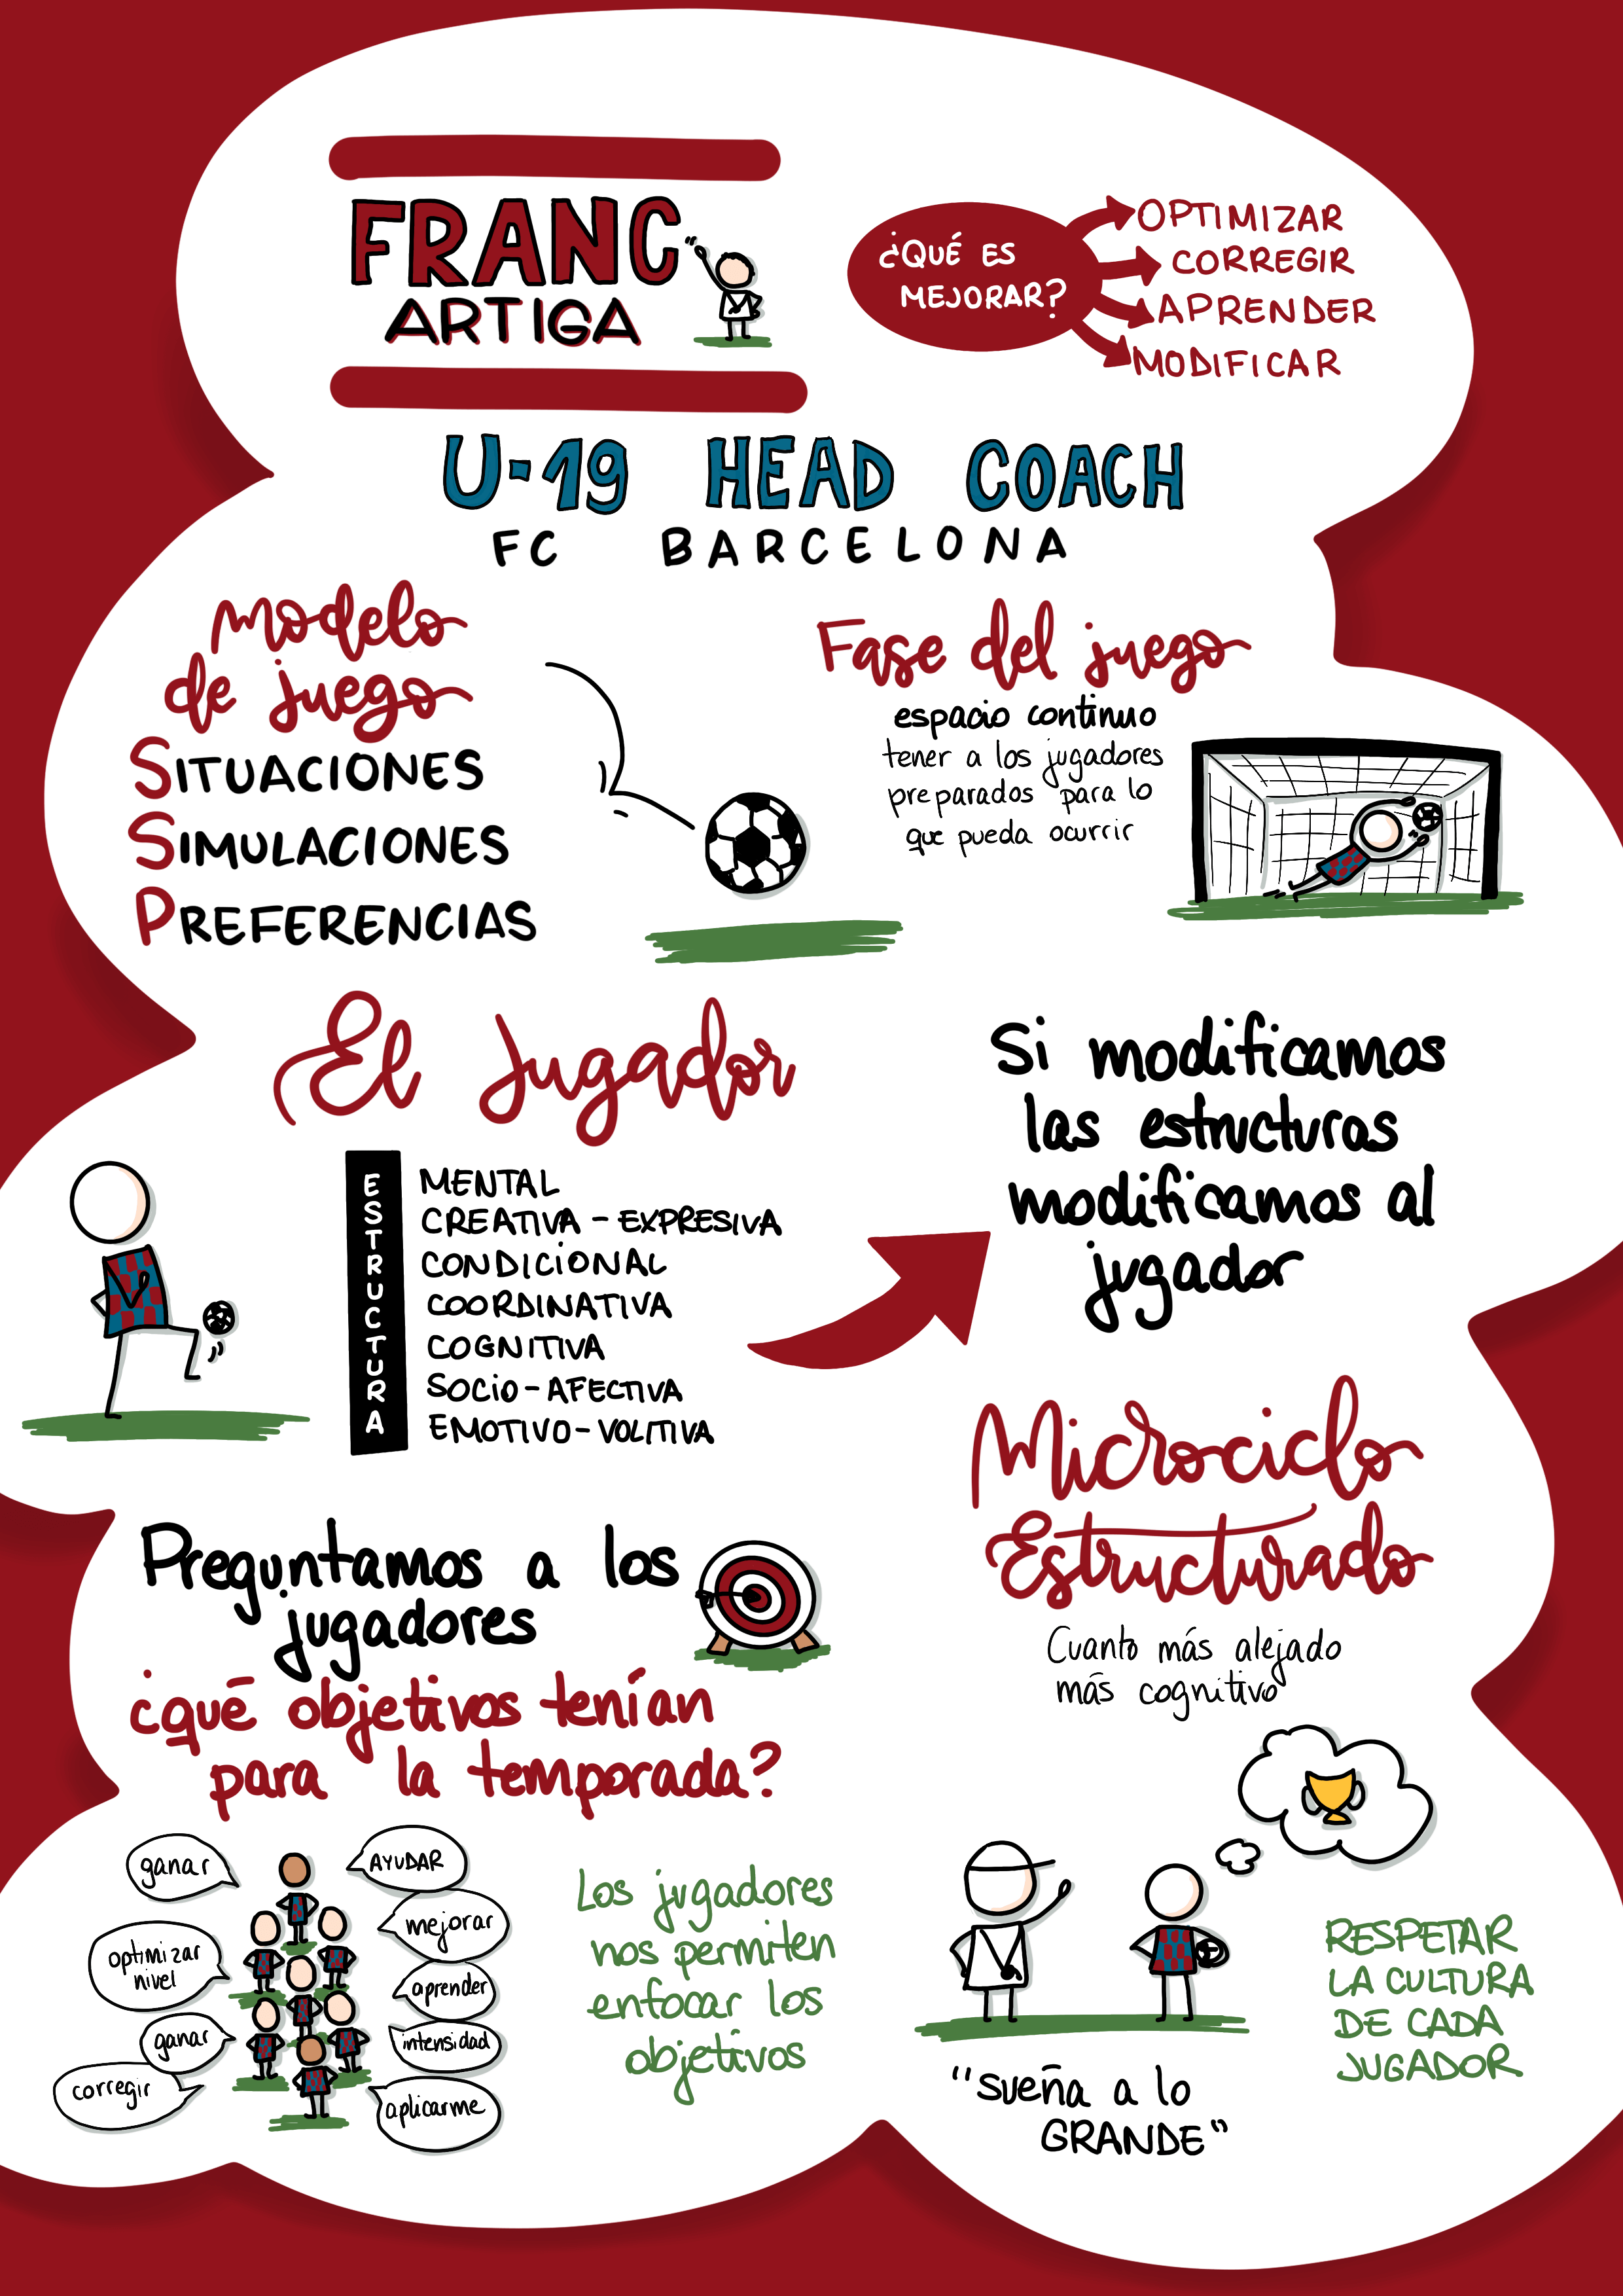 FRANC
ARTIGA
¿QUÉ ES
MEJORAR?
OPTIMIZAR
CORREGIR
APRENDER
MODIFICAR
U-19 HEAD COACH
FC BARCELONA
Modelo
de juego
SITUACIONES
SIMULACIONES
PREFERENCIAS
Fase del juego
espacio continuo
tener a los jugadores
preparados para lo
que pueda ocurrir
El Jugador
ESTRUCTURA
MENTAL
CREATIVA - EXPRESIVA
CONDICIONAL
COORDINATIVA
COGNITIVA
SOCIO - AFECTIVA
EMOTIVO - VOLITIVA
Si modificamos
las estructuras
modificamos al
jugador
Microciclo
Estructurado
Cuanto más alejado
más cognitivo
Preguntamos a los
jugadores
¿qué objetivos tenían
para la temporada?
ganar
AYUDAR
mejorar
optimizar
nivel
aprender
ganar
intensidad
corregir
aplicarme
Los jugadores
nos permiten
enfocar los
objetivos
"sueña a lo
GRANDE"
RESPETAR
LA CULTURA
DE CADA
JUGADOR